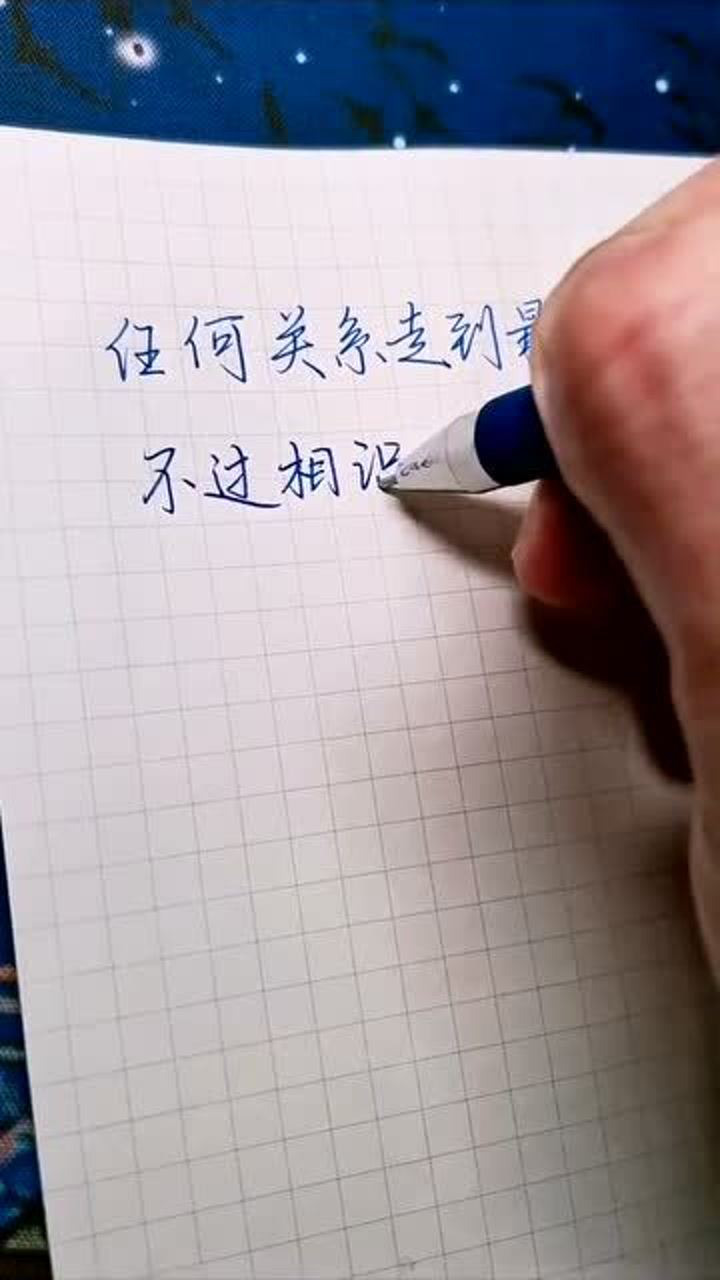 任何关系走到最
不过相识